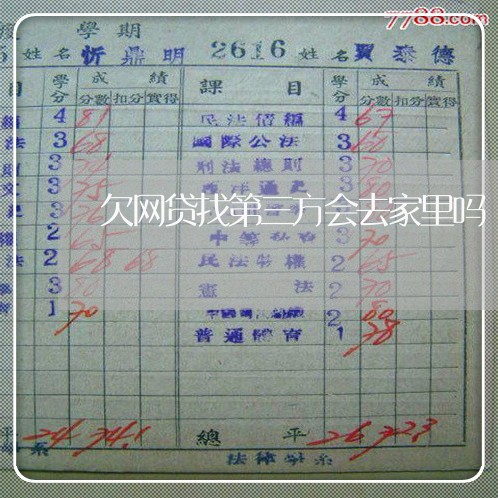 7788.com
學期
姓名 忻鼎明 2616 姓名 賈泰德
目 學分 成績 課目 學分 成績
分數 扣分 實得 分數 扣分 實得
4 81 民法債編 4 67
法 3 68 國際公法 3 60
3 刑法總則 3 70
3 75 西洋通史 3 80
欠网贷找第三方会去家里吗
2 65 3 70
法 2 68 68 民法物權 2 65
3 80 憲法 2 70
1 70 2 80
普通體育 1 78
平 24 74.1 總平 26 72.3
系 法律學系